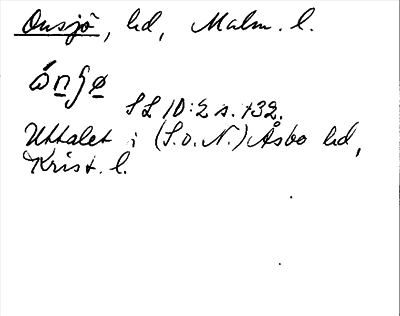 Onsjö, hd, Malm. l.
ònʃø
SL 1D:2 s. 432.
Uttalet i (S. o. N.) Åsbo hd,
Krist. l.